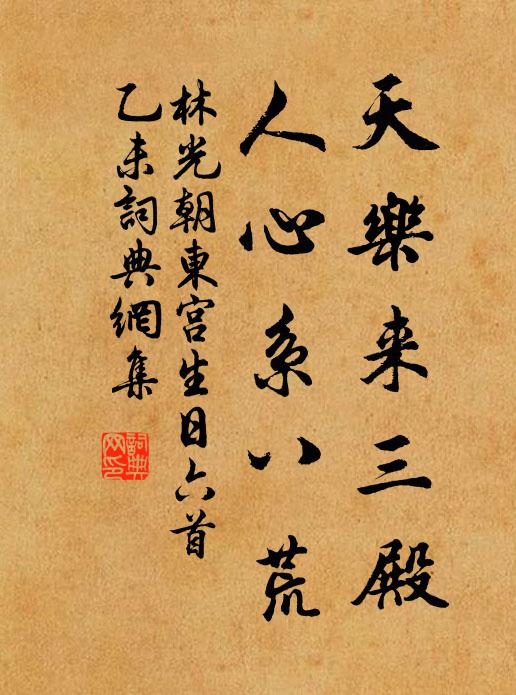 天樂来三殿
人心系八荒
林光朝東宮生日六首
乙未詞典網集
詞典网印